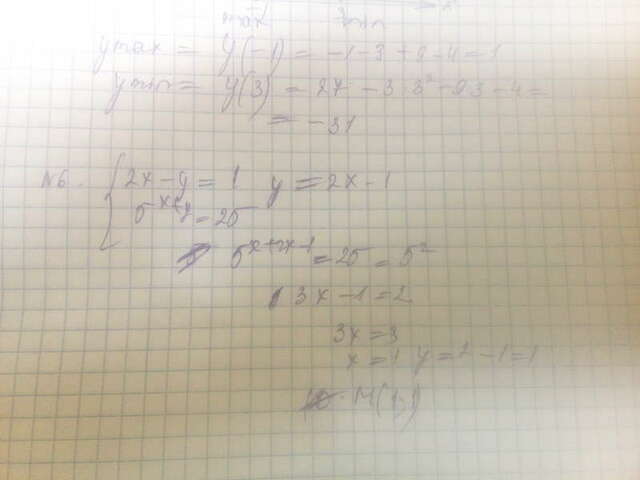 max min
ymax = y(-1) = -1-3+9-4=1
ymin = y(3) = 27 - 3·3² - 9·3 - 4 =
= -31
N6. { 2x-y = 1 y = 2x-1
5^{x+y} = 25
5^{x+2x-1} = 25 = 5²
3x-1=2
3x=3
x=1 y=2-1=1
M(1;1)